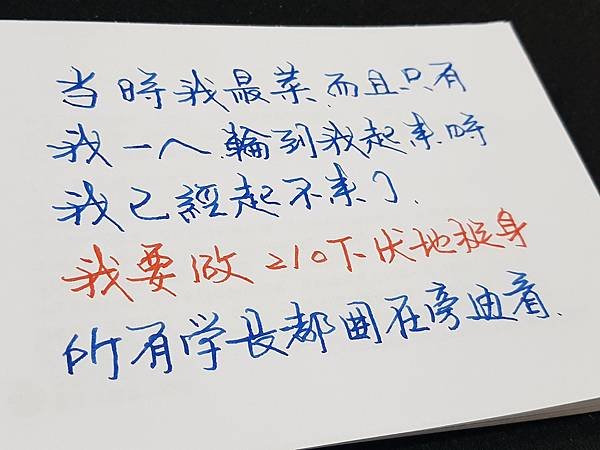 当時我最菜.而且只有
我一人.輪到我起來時
我已經起不來了.
我要做210下伏地挺身
所有学長都囲在旁边看.